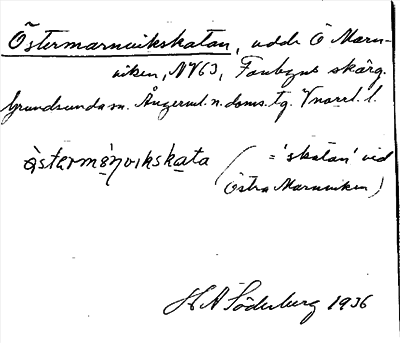 Östermarnvikskatan, udde Ö Marn-
viken, NV63, Fanbyns skärg.
Grundsunda sn. Ångerml. n. doms. tg. Vnorrl. l.
östermè̱ṇvikskata̱ ( = 'skatan' vid
Östra Marnviken )
H A Söderberg 1936